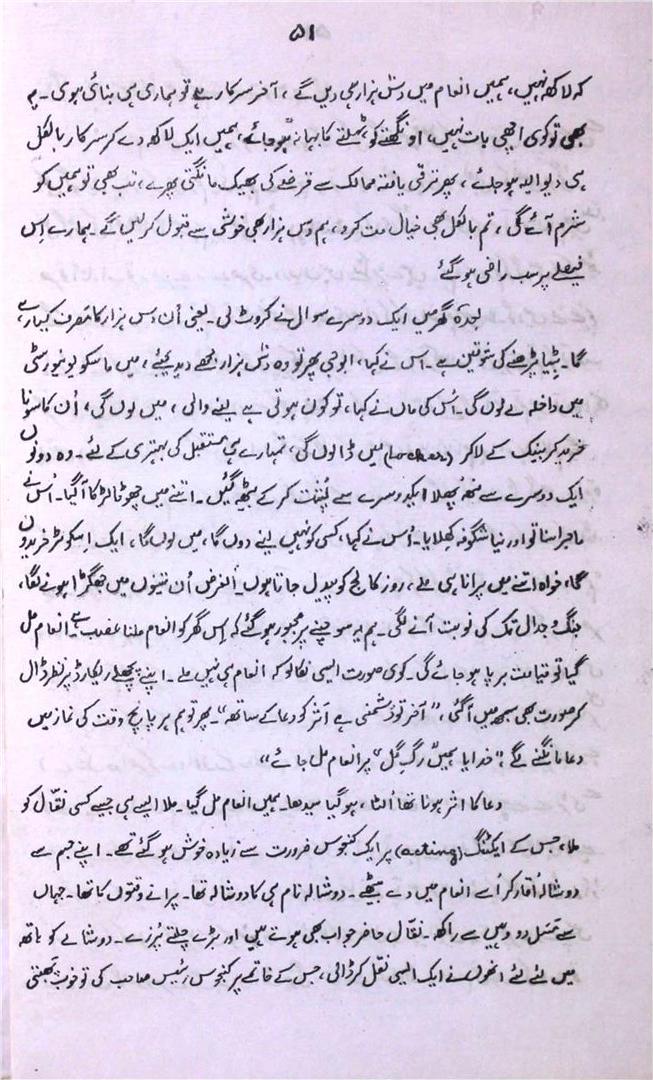 ۵۱
کہ لاکھ نہیں، ہمیں انعام میں دس ہزار ہی دیں گے، آخر سرکار ہے تو ہماری ہی بنائی ہوئی۔ یہ
بھی تو کوئی اچھی بات نہیں، اونگھتے کو ٹھیلتے کا بہانہ ہو جائے، ہمیں ایک لاکھ دے کر سرکار بالکل
ہی دیوالیہ ہو جائے، پھر ترقی یافتہ ممالک سے قرضے کی بھیک مانگتی پھرے، تب بھی تو ہمیں کو
شرم آئے گی، تم بالکل بھی خیال مت کرو، ہم دس ہزار بھی خوشی سے قبول کر لیں گے۔ ہمارے اِس
فیصلے پر سب راضی ہو گئے
بعدہٗ گھر میں ایک دوسرے سوال نے کروٹ لی۔ یعنی اُن دس ہزار کا مَصرف کیا رہے
گا۔ بٹیا پڑھنے کی شوقین ہے۔ اس نے کہا، ابو جی پھر تو وہ دس ہزار مجھے دیدیجئے، میں ماسکو یونیورسٹی
میں داخلہ لے لوں گی۔ اُس کی ماں نے کہا، تو کون ہوتی ہے لینے والی، میں لوں گی، اُن کا سونا
خرید کر بینک کے لاکر (Locker) میں ڈالوں گی، تمہارے ہی مستقبل کی بہتری کے لئے۔ وہ دونوں
ایک دوسرے سے منھ پھلا ایک دوسرے سے پُشت کر کے بیٹھ گئیں۔ اتنے میں چھوٹا لڑکا آ گیا۔ اُس نے
ماجرا سنا تو اور نیا شگوفہ کھلایا۔ اُس نے کہا، کسی کو نہیں لینے دوں گا، میں لوں گا، ایک اسکوٹر خریدوں
گا، خواہ اتنے میں پرانا ہی ملے، روز کالج کو پیدل جاتا ہوں۔ الغرض اُن تینوں میں جھگڑا ہونے لگا،
جنگ و جدال تک کی نوبت آنے لگی۔ ہم یہ سوچنے پر مجبور ہو گئے کہ اِس گھر کو انعام ملنا غضب ہے۔ انعام مل
گیا تو قیامت برپا ہو جائے گی۔ کوئی صورت ایسی نکالو کہ انعام ہی نہیں ملے۔ اپنے پچھلے ریکارڈ پر نظر ڈال
کر صورت بھی سمجھ میں آ گئی، ”آخر تو دُشمنی ہے اَثر کو دعا کے ساتھ“۔ پھر تو ہم ہر پانچ وقت کی نماز میں
دعا مانگنے لگے ”خدایا ہمیں ”رگِ گُل“ پر انعام مل جائے“
دعا کا اثر ہونا تھا اُلٹا، ہو گیا سیدھا۔ ہمیں انعام مل گیا۔ ملا ایسے ہی جیسے کسی نقّال کو
ملا، جس کے ایکٹنگ (acting) پر ایک کنجوس ضرورت سے زیادہ خوش ہو گئے تھے۔ اپنے جسم سے
دوشالہ اُتار کر اُسے انعام میں دے بیٹھے۔ دوشالہ نام ہی کا دوشالہ تھا۔ پرانے وقتوں کا تھا۔ جہاں
سے مَسل دو وہیں سے راکھ۔ نقّال حاضر جواب بھی ہوتے ہیں اور بڑے چلتے پُرزے۔ دوشالے کو ہاتھ
میں لئے لئے انھوں نے ایک ایسی نقل کر ڈالی، جس کے خاتمے پر کنجوس رئیس صاحب کی تو خوب بھنتی